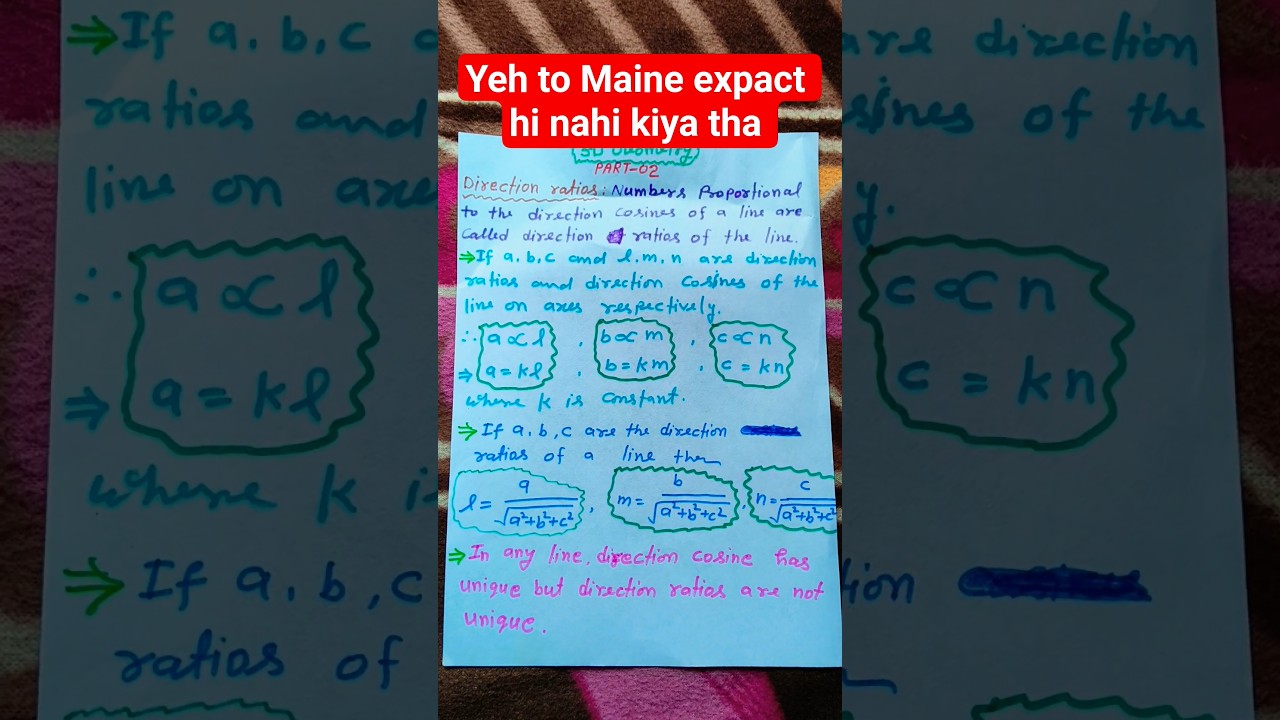 Yeh to Maine expact
hi nahi kiya tha
3D Geometry
PART-02
Direction ratios: Numbers Proportional
to the direction cosines of a line are
called direction ratios of the line.
⇒If a, b, c and l, m, n are direction
ratios and direction cosines of the
line on axes respectively.
∴ a ∝ l , b ∝ m , c ∝ n
⇒ a = kl , b = km , c = kn
where k is constant.
⇒If a, b, c are the direction
ratios of a line then
l = a/√a²+b²+c² , m = b/√a²+b²+c² , n = c/√a²+b²+c²
⇒In any line, direction cosine has
unique but direction ratios are not
unique.
⇒If a, b, c
are direction
ratios and
sines of the
line on axes
y.
∴ a ∝ l
c ∝ n
⇒ a = kl
c = kn
where k i
⇒If a, b, c
ion
ratios of